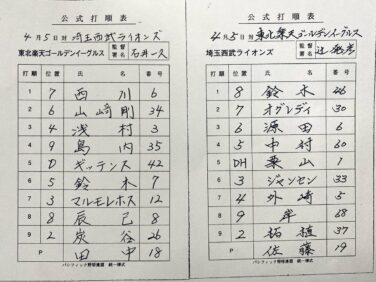 公式打順表
4月5日対埼玉西武ライオンズ
東北楽天ゴールデンイーグルス 監督署名 石井一久
打順 位置 氏名 番号
1 7 西川 6
2 6 山﨑剛 34
3 4 浅村 3
4 9 島内 35
5 D ギッテンス 42
6 5 鈴木 7
7 3 マルモレホス 12
8 8 辰己 8
9 2 炭谷 26
P 田中 18
パシフィック野球連盟 統一様式
公式打順表
4月5日対東北楽天ゴールデンイーグルス
埼玉西武ライオンズ 監督署名 辻発彦
打順 位置 氏名 番号
1 8 鈴木 46
2 7 オグレディ 30
3 6 源田 6
4 5 中村 60
5 DH 栗山 1
6 3 ジャンセン 33
7 4 外崎 5
8 9 岸 68
9 2 柘植 37
P 佐藤 19
パシフィック野球連盟 統一様式